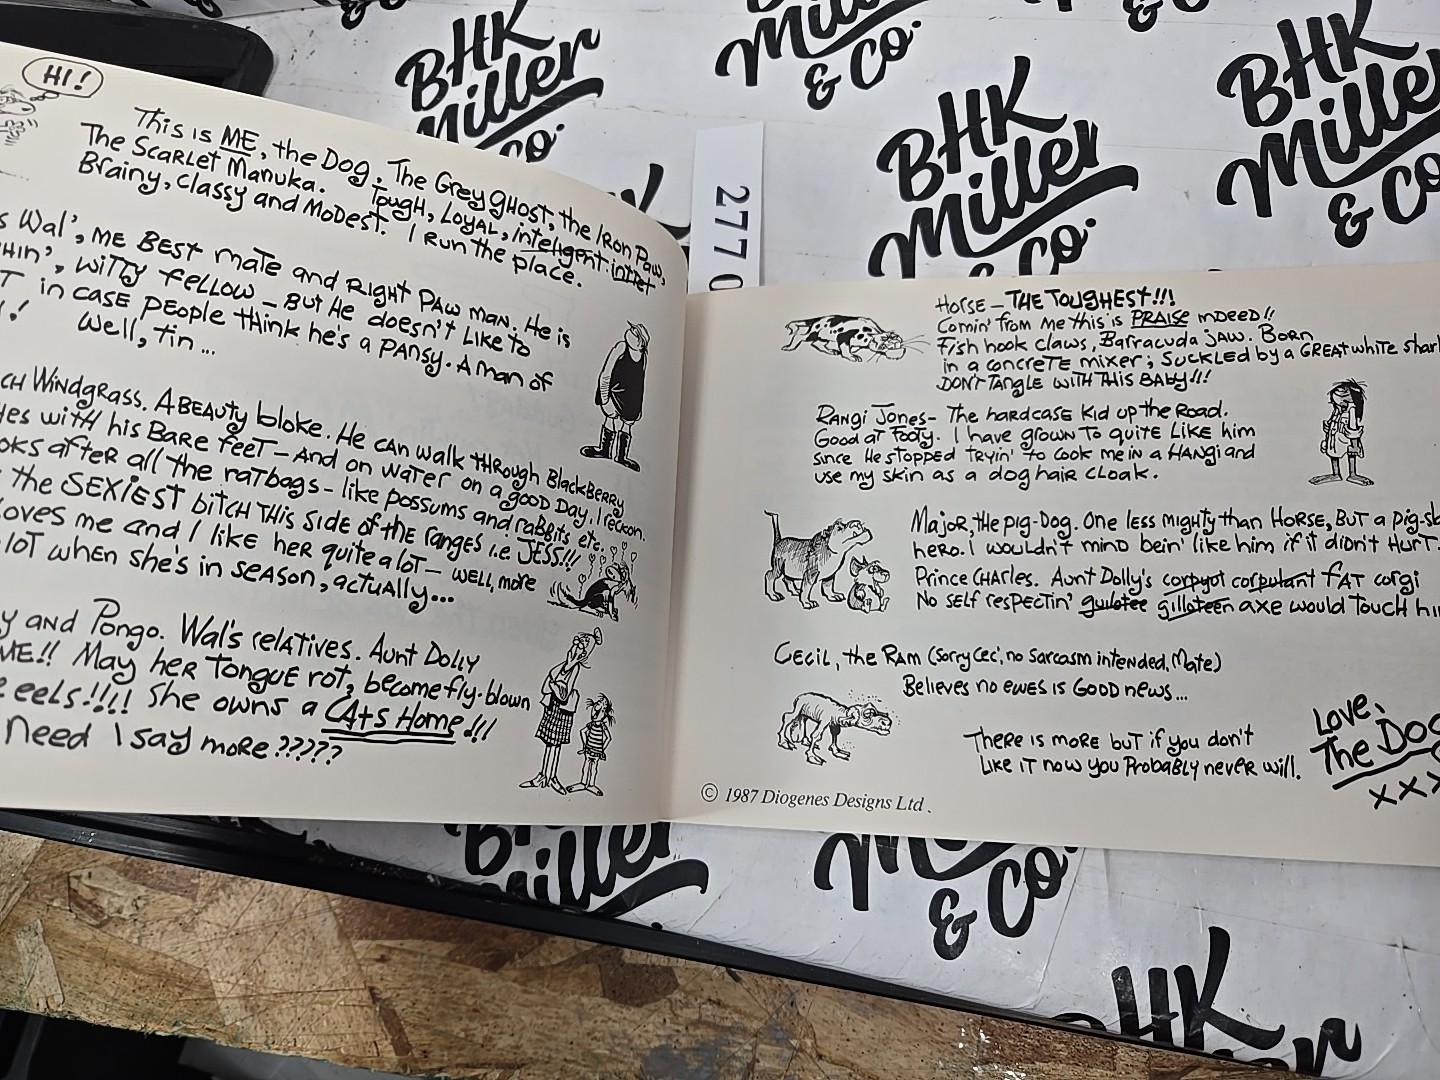 HI!
This is ME, the Dog. The Grey Ghost, the Iron Paw,
The Scarlet Manuka. Tough, Loyal, inteligent intlet
Brainy, classy and Modest. I Run the place.
s Wal', ME BEST mate and Right Paw man. He is
HIN', witty fellow - But He doesn't Like to
T in case people think he's a pansy. A man of
! Well, tin...
CH Windgrass. A BEAUTY bloke. He can walk through BlackBerry
es with his Bare feet - And on water on a good Day, I reckon.
oks after all the ratbags - like possums and rabbits etc.
the SEXIEST bitch this side of the ranges i.e JESS!!!
oves me and I like her quite a lot - well, more
lot when she's in season, actually...
y and Pongo. Wal's relatives. Aunt Dolly
ME!! May her tongue rot, become fly-blown
eels!!!! She owns a CAts Home!!!
need I say more?????
Horse - THE TOUGHEST!!!
Comin' from me this is PRAISE indeed!!
Fish hook claws, Barracuda jaw. Born
in a concrete mixer; suckled by a GREAT white shar
DON'T Tangle with this Baby!!!
Rangi Jones - The hardcase kid up the Road.
Good at Footy. I have grown to quite like him
since He stopped tryin' to cook me in a Hangi and
use my skin as a dog hair cloak.
Major, the pig-Dog. One less mighty than Horse, But a pig-s
hero. I wouldn't mind bein' like him if it didn't Hurt.
Prince Charles. Aunt Dolly's corpyot corpulant FAT corgi
No self respectin' guilotee gilloteen axe would touch hi
Cecil, the Ram (Sorry Cec', no sarcasm intended, Mate)
Believes no ewes is Good news...
There is more but if you don't
Like it now you Probably never will.
Love,
The Do
xxx
© 1987 Diogenes Designs Ltd.
277
BHK
Miller
& Co.
BHK
Miller
& Co.
BHK
Miller
& Co.
Miller
& Co.
Miller
& Co.
BHK